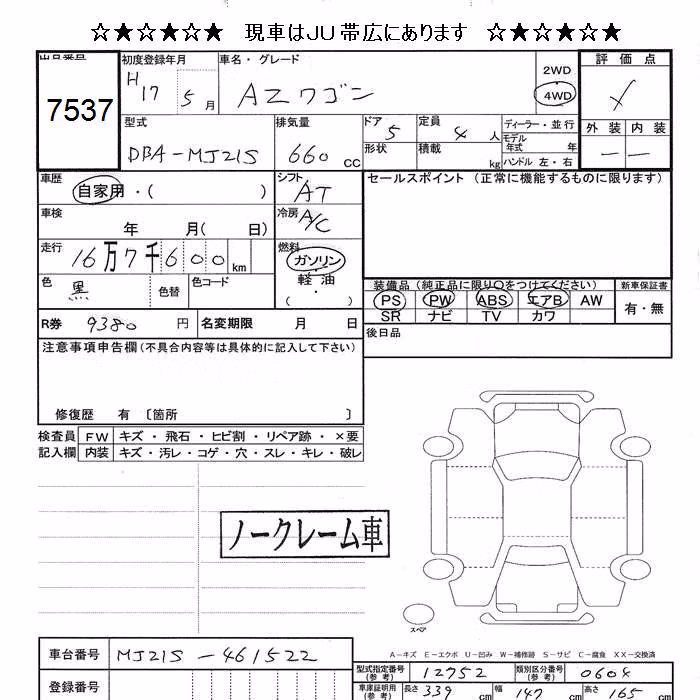 ☆★☆★☆★ 現車はJU帯広にあります ☆★☆★☆★
出品番号 初度登録年月 車名・グレード 2WD 評価点
7537 H17 5月 AZワゴン 4WD
型式 排気量 ドア 5 定員 4人 ディーラー・並行 外装 内装
DBA-MJ21S 660cc 形状 積載 kg モデル年式 年 ハンドル 左・右 — —
車歴 自家用・( ) シフト AT セールスポイント (正常に機能するものに限ります)
車検 年 月( 日) 冷房 A/C
走行 16万7千600km 燃料 ガソリン
色 黒 色替 色コード 軽油 ・( )
装備品 (純正品に限り○をつけてください) 新車保証書
PS PW ABS エアB AW 有・無
SR ナビ TV カワ
R券 9380円 名変期限 月 日 後日品
注意事項申告欄(不具合内容等は具体的に記入して下さい)
修復歴 有 〔箇所 〕
検査員 FW キズ・飛石・ヒビ割・リペア跡・×要
記入欄 内装 キズ・汚レ・コゲ・穴・スレ・キレ・破レ
ノークレーム車
スペア
A-キズ E-エクボ U-凹み W-補修跡 S-サビ C-腐食 XX-交換済
車台番号 MJ21S-461522
型式指定番号(参考) 12752 類別区分番号(参考) 0604
登録番号
車庫証明用(参考) 長さ 339cm 幅 147cm 高さ 165cm